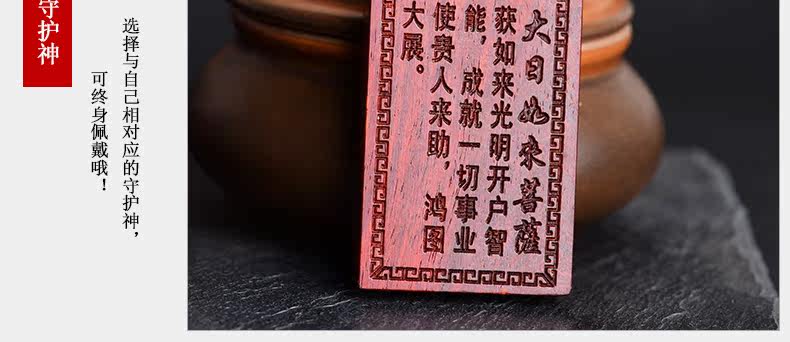 守护神
选择与自己相对应的守护神，
可终身佩戴哦！
大日如来菩薩
获如来光明开户智
能，成就一切事业
使贵人来助，鸿图
大展。